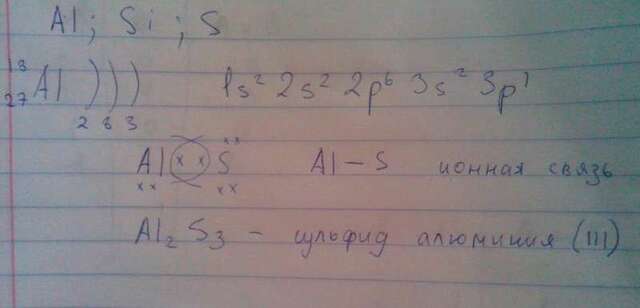 Al; Si; S
13 27 Al ) ) ) 2 8 3 1s² 2s² 2p⁶ 3s² 3p¹
Al x x S Al – S ионная связь
Al₂S₃ – сульфид алюминия (III)